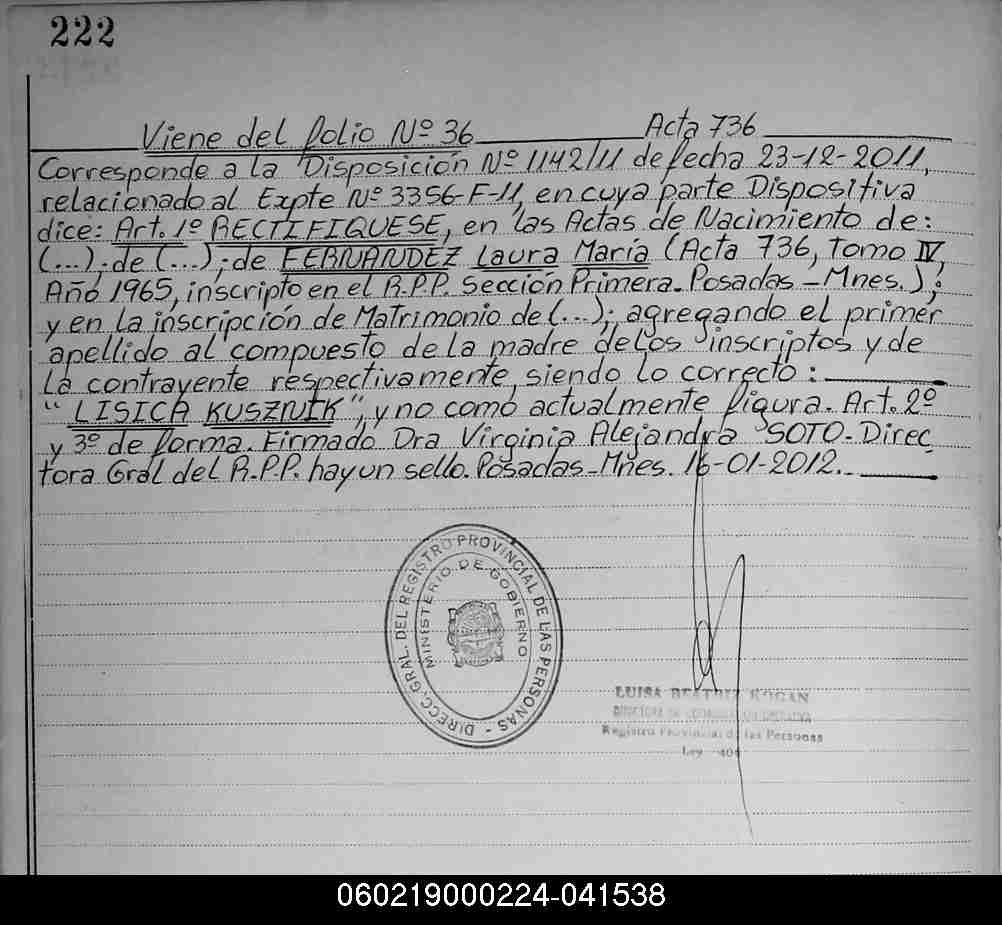 222
Viene del folio Nº 36 Acta 736
Corresponde a la Disposición Nº 1142/11 de fecha 23-12-2011,
relacionado al Expte Nº 3356-F-11, en cuya parte Dispositiva
dice: Art. 1º RECTIFIQUESE, en las Actas de Nacimiento de:
(...); de (...); de FERNANDEZ Laura María (Acta 736, Tomo IV,
Año 1965, inscripto en el R.P.P. Sección Primera. Posadas - Mnes.);
y en la inscripción de Matrimonio de (...); agregando el primer
apellido al compuesto de la madre de los inscriptos y de
la contrayente respectivamente, siendo lo correcto:
"LISICA KUSZNIK", y no como actualmente figura. Art. 2º
y 3º de forma. Firmado Dra Virginia Alejandra SOTO - Direc
tora Gral del R.P.P. hay un sello. Posadas - Mnes. 16-01-2012.
DIRECC. GRAL. DEL REGISTRO PROVINCIAL DE LAS PERSONAS -
MINISTERIO DE GOBIERNO
LUISA BEATRIZ KOGAN
Registro Provincial de las Personas
Ley 404
060219000224-041538